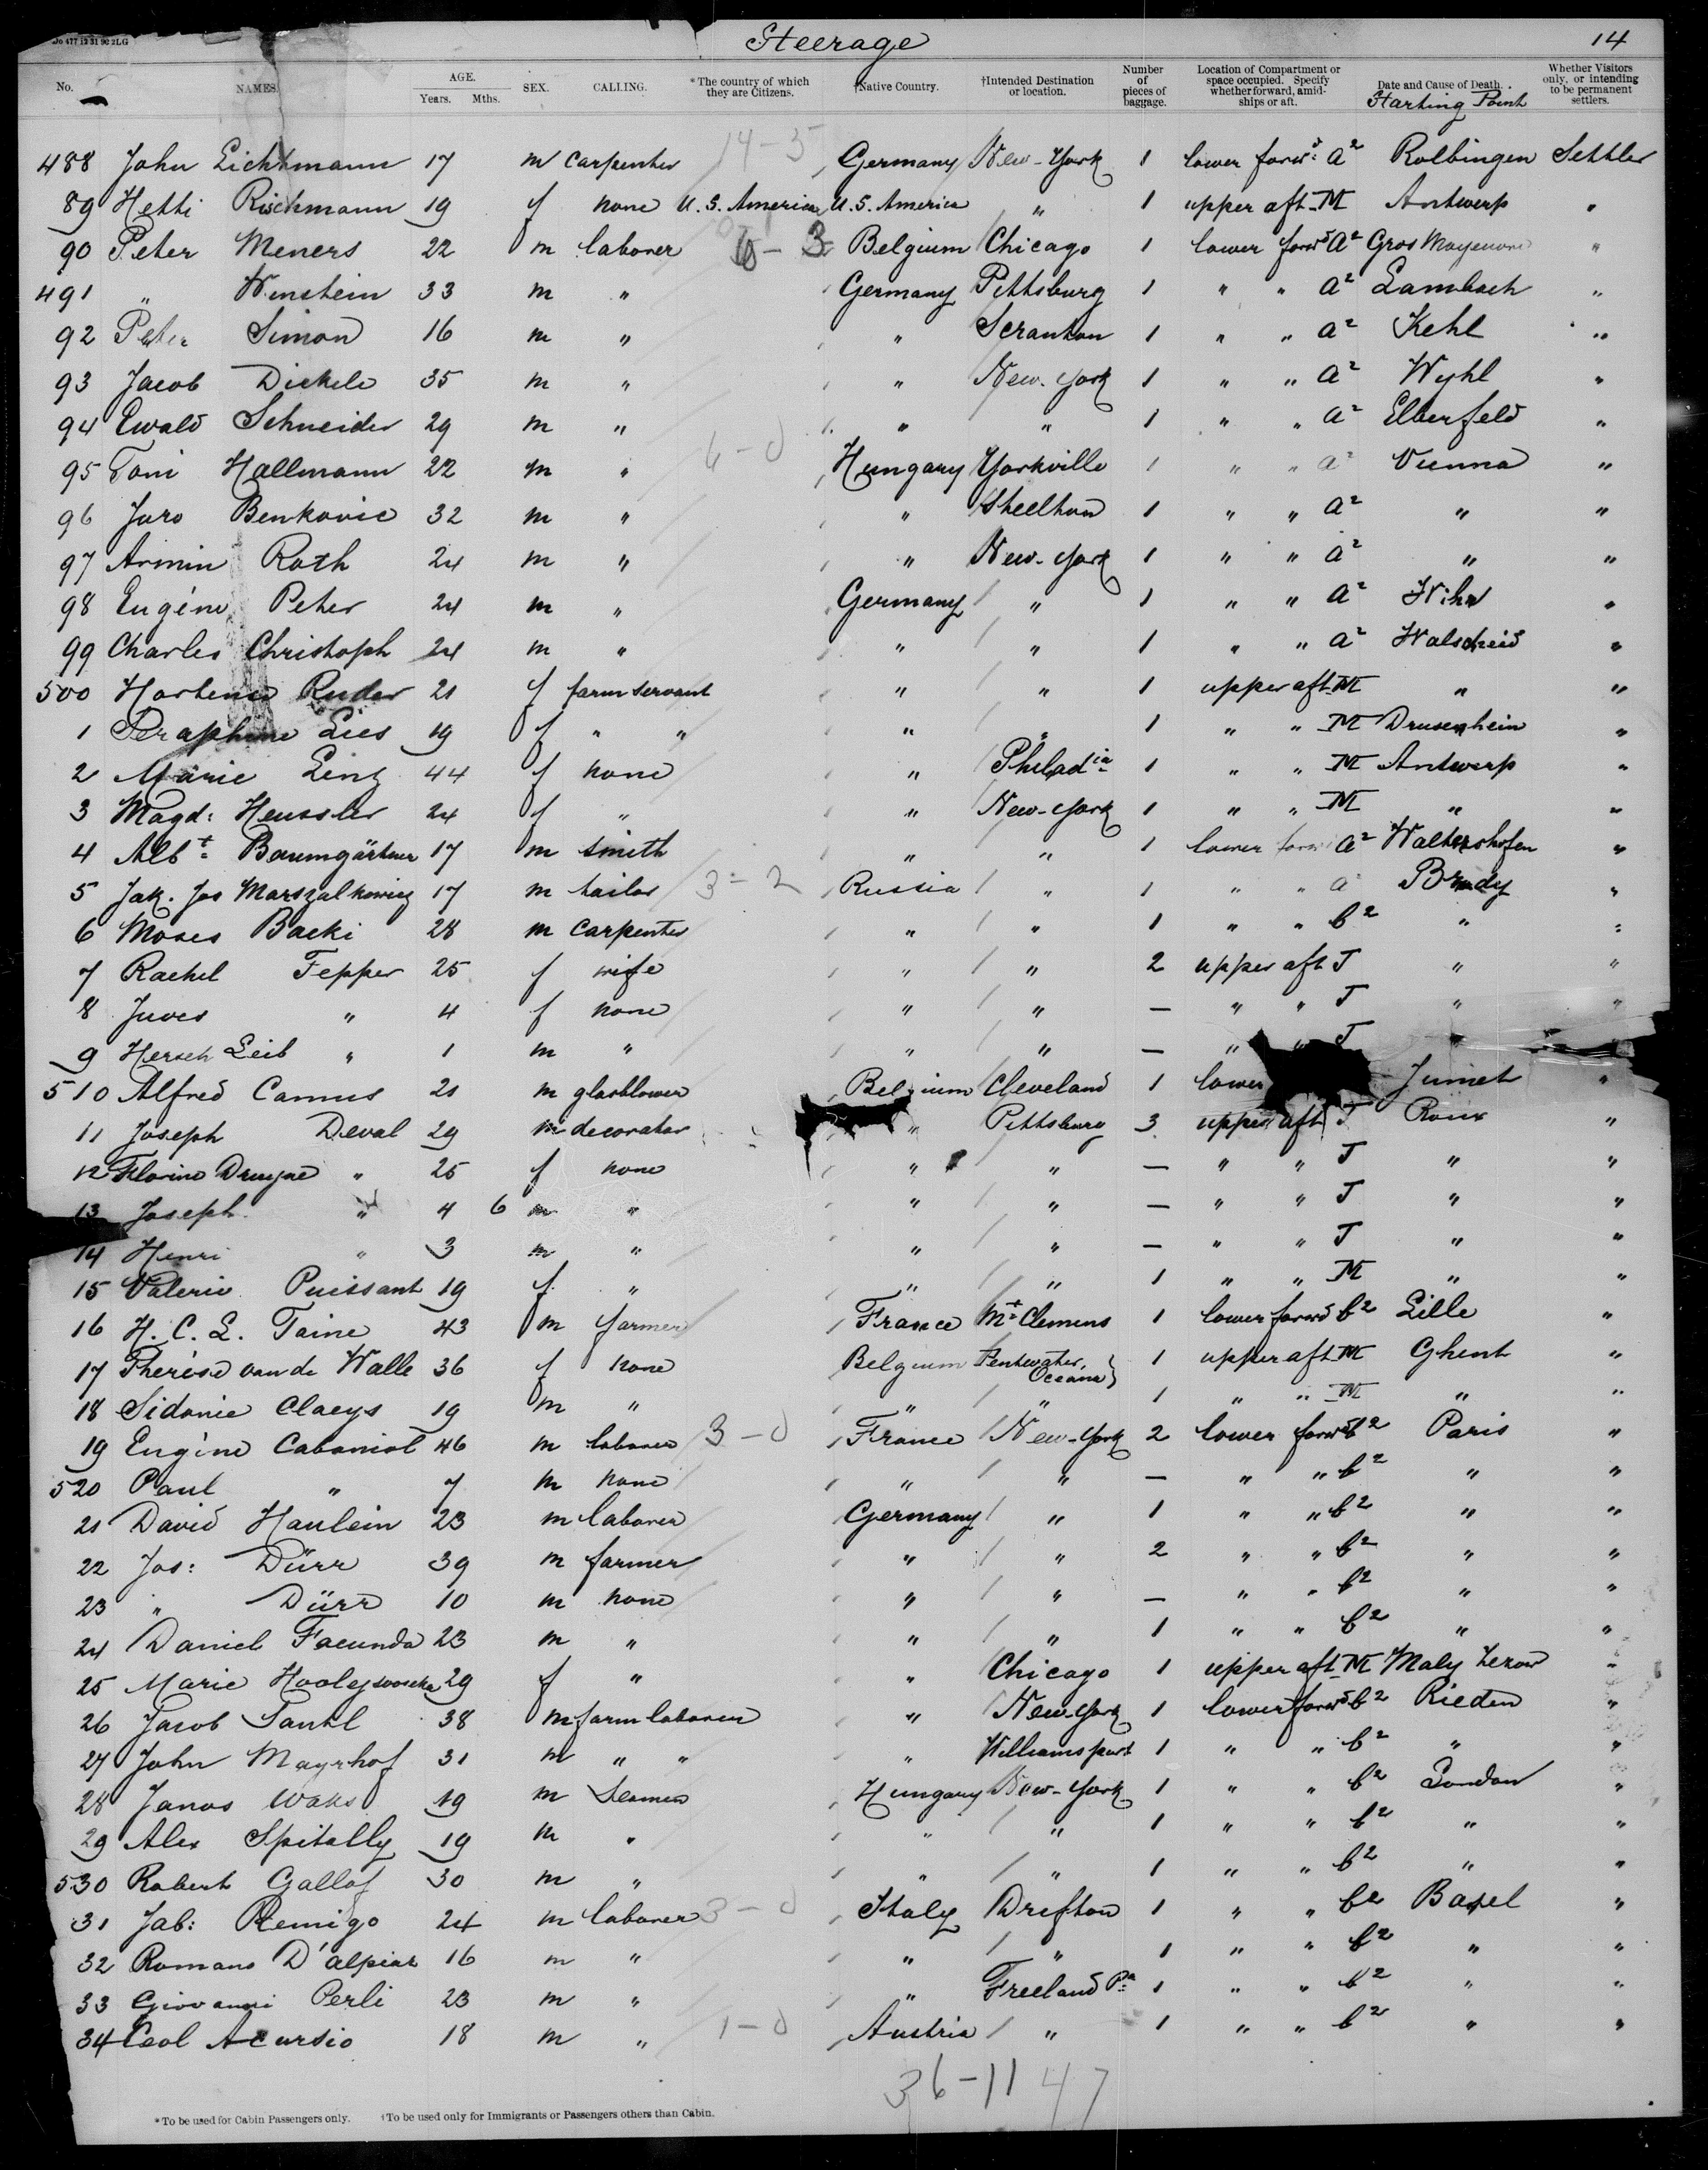 Steerage 14
No. NAMES. AGE. Years. Mths. SEX. CALLING. *The country of which they are Citizens. †Native Country. †Intended Destination or location. Number of pieces of baggage. Location of Compartment or space occupied. Specify whether forward, amidships or aft. Date and Cause of Death. Starting Point Whether Visitors only, or intending to be permanent settlers.
14-5
488 John Lichtmann 17 m carpenter Germany New-York 1 lower forwd: a2 Rolbingen Settler
89 Hetti Rischmann 19 f none U.S. America U.S. America " 1 upper aft M Antwerp "
90 Peter Meners 22 m laborer 3 Belgium Chicago 1 lower forwd a2 Gros "
491 " Winstein 33 m " Germany Pittsburg 1 " " a2 Lambach "
92 Peter Simon 16 m " " Scranton 1 " " a2 Kehl "
93 Jacob Dickele 35 m " " New-York 1 " " a2 Wyhl "
94 Ewald Schneider 29 m " " " 1 " " a2 Elberfeld "
95 Toni Hallmann 22 m " 4-0 Hungary Yorkville 1 " " a2 Vienna "
96 Juro Benkovic 32 m " " Steelton 1 " " a2 " "
97 Armin Roth 24 m " " New-York 1 " " a2 " "
98 Eugéne Peter 24 m " Germany " 1 " " a2 Wihr "
99 Charles Christoph 24 m " " " 1 " " a2 Walscheid "
500 Hortense Ruder 21 f farm servant " " 1 upper aft M " "
1 Seraphine Lies 19 f " " " " 1 " " M Drusenheim "
2 Marie Linz 44 f none " Philadia 1 " " M Antwerp "
3 Magd: Heussler 24 f " " New-York 1 " " M " "
4 Albt Baumgärtner 17 m smith " " 1 lower forwd a2 Waltershofen "
5 Jak. Jos Marszalkowicz 17 m tailor 3-2 Russia " 1 " " a Brody "
6 Moses Backi 28 m carpenter " " 1 " " b2 " "
7 Rachel Fepper 25 f wife " " 2 upper aft J " "
8 Juves " 4 f none " " — " " J " "
9 Hersch Leib " 1 m " " " — " " J
510 Alfred Camus 21 m glassblower Belgium Cleveland 1 lower Jumet "
11 Joseph Deval 29 m decorator " Pittsburg 3 upper aft J Roux "
12 Florine Druyne " 25 f none " " — " " J " "
13 Joseph " 4 6 m " " " — " " J " "
14 Henri " 3 m " " " — " " J " "
15 Valerie Puissant 19 f " " " 1 " " M " "
16 H. C. L. Taine 43 m farmer France Mt Clemens 1 lower forwd b2 Lille "
17 Therése van de Walle 36 f none Belgium Pentwater, Oceana } 1 upper aft M Ghent "
18 Sidonie Claeys 19 m " " " 1 " " M " "
19 Eugéne Cabaniol 46 m laborer 3-0 France New-York 2 lower forwd b2 Paris "
520 Paul " 7 m none " " — " " b2 " "
21 David Haulein 23 m laborer Germany " 1 " " b2 " "
22 Jos: Dürr 39 m farmer " " 2 " " b2 " "
23 " Dürr 10 m none " " — " " b2 " "
24 Daniel Facunda 23 m " " " 1 " " b2 " "
25 Marie 29 f " " Chicago 1 upper aft M Maly "
26 Jacob Santl 38 m farm laborer " New-York 1 lower forwd b2 Rieden "
27 John Mayrhof 31 m " " " Williamsport 1 " " b2 " "
28 Janos Waks 19 m Seamen Hungary New-York 1 " " b2 London "
29 Alex Spitally 19 m " " " 1 " " b2 " "
530 Robert Gallof 30 m " " " 1 " " b2 " "
31 Jab: Remigo 24 m laborer 3-0 Italy Drifton 1 " " b2 Basel "
32 Romano D'alpiaz 16 m " " " 1 " " b2 " "
33 Giovanni Perli 23 m " " Freeland Pa 1 " " b2 " "
34 Ceol Acursio 18 m " 1-0 Austria " 1 " " b2 " "
36-11 47
*To be used for Cabin Passengers only. †To be used only for Immigrants or Passengers others than Cabin.